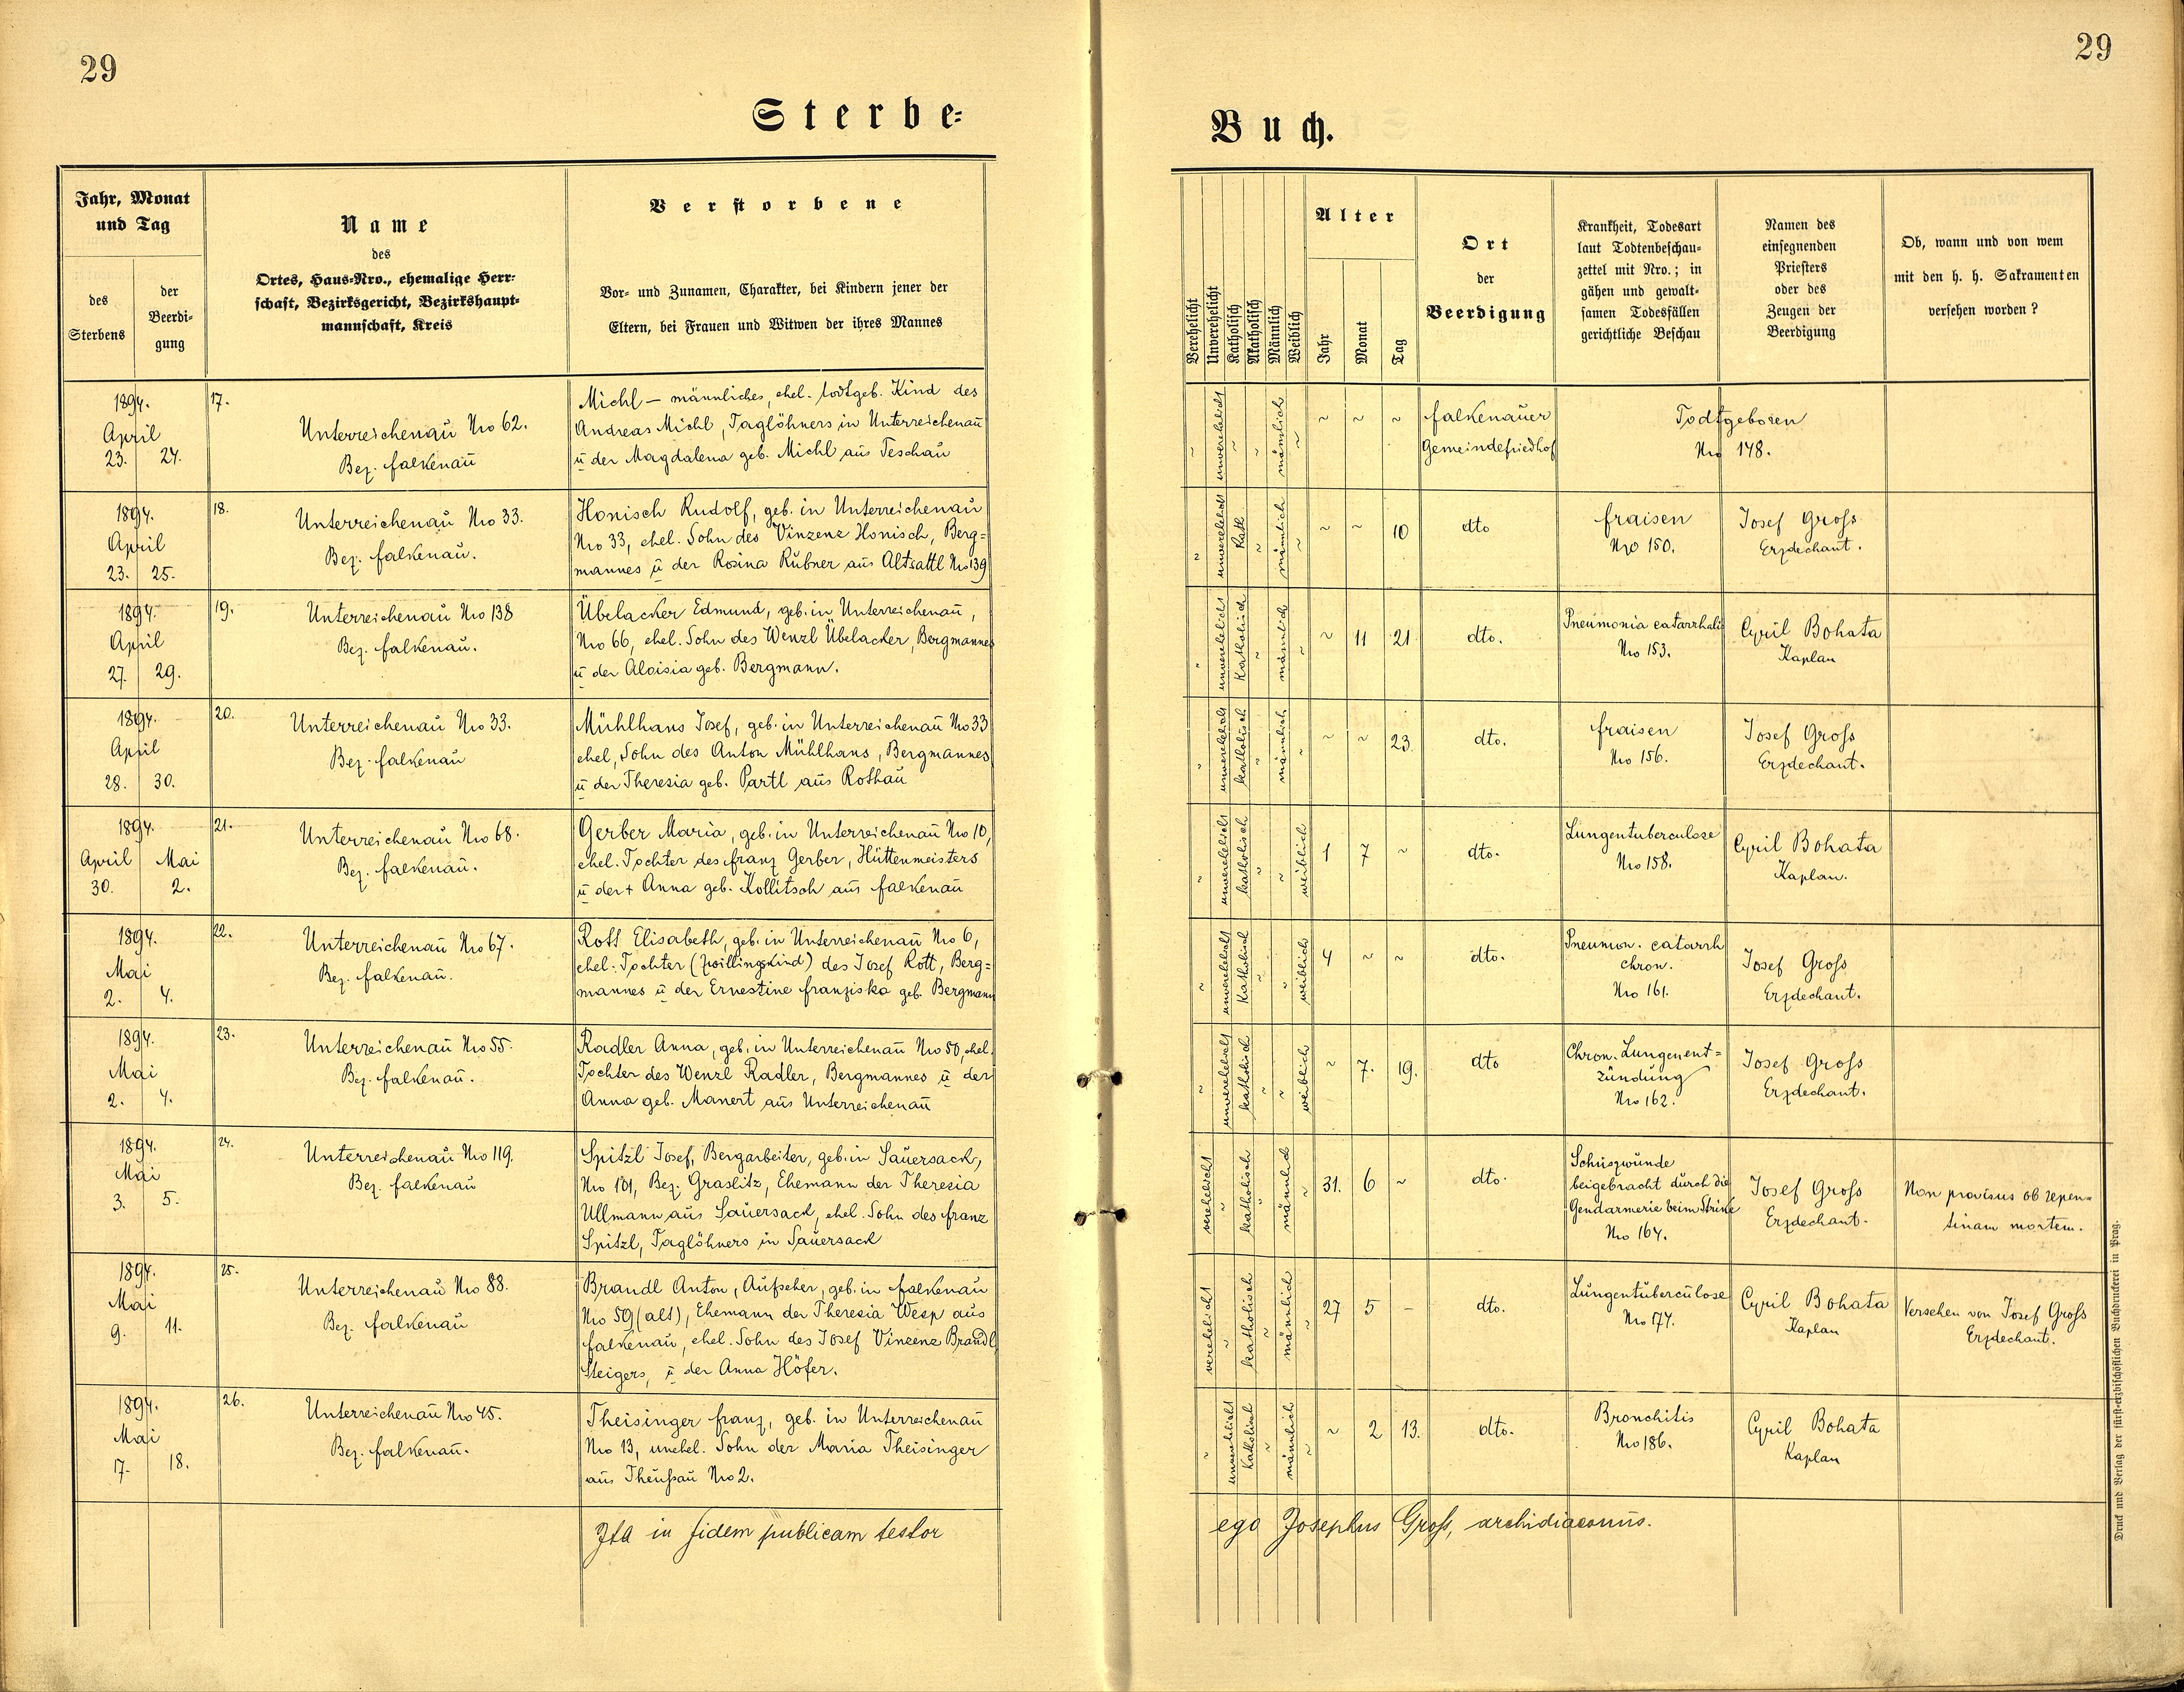 29
29
Sterbe-
Buch.
Jahr, Monat
und Tag
des
Sterbens
der
Beerdi-
gung
Name
des
Ortes, Haus-Nro., ehemalige Herr-
schaft, Bezirksgericht, Bezirkshaupt-
mannschaft, Kreis
Verstorbene
Vor- und Zunamen, Charakter, bei Kindern jener der
Eltern, bei Frauen und Witwen der ihres Mannes
Verehelicht
Unverehelicht
Katholisch
Akatholisch
Männlich
Weiblich
Alter
Jahr
Monat
Tag
Ort
der
Beerdigung
Krankheit, Todesart
laut Todtenbeschau-
zettel mit Nro.; in
gähen und gewalt-
samen Todesfällen
gerichtliche Beschau
Namen des
einsegnenden
Priesters
oder des
Zeugen der
Beerdigung
Ob, wann und von wem
mit den h. h. Sakramenten
versehen worden?
1894.
April
23. 24.
17.
Unterreichenau No 62.
Bez. Falkenau
Michl – männliches, ehel. todtgeb. Kind des
Andreas Michl, Taglöhners in Unterreichenau
u der Magdalena geb. Michl aus Teschau
~ unverehelicht ~ ~ männlich ~
~ ~ ~
Falkenauer
Gemeindefriedhof
Todtgeboren
No 148.
1894.
April
23. 25.
18.
Unterreichenau No 33.
Bez. Falkenau.
Honisch Rudolf, geb. in Unterreichenau
No 33, ehel. Sohn des Vinzenz Honisch, Berg=
mannes u der Rosina Rubner aus Altsattl No 139
~ unverehelicht Kath ~ männlich ~
~ ~ 10
dto
Fraisen
No 150.
Josef Gross
Erzdechant.
1894.
April
27. 29.
19.
Unterreichenau No 138
Bez. Falkenau.
Übelacker Edmund, geb. in Unterreichenau,
No 66, ehel. Sohn des Wenzl Übelacker, Bergmannes
u der Aloisia geb. Bergmann.
~ unverehelicht Katholisch ~ männlich ~
~ 11 21
dto.
Pneumonia catarrhalis
No 153.
Cyril Bohata
Kaplan
1894.
April
28. 30.
20.
Unterreichenau No 33.
Bez. Falkenau
Mühlhans Josef, geb. in Unterreichenau No 33
ehel, Sohn des Anton Mühlhans, Bergmannes
u der Theresia geb. Partl aus Rothau
~ unverehelicht katholisch ~ männlich ~
~ ~ 23.
dto.
Fraisen
No 156.
Josef Gross
Erzdechant.
1894.
April Mai
30. 2.
21.
Unterreichenau No 68.
Bez. Falkenau.
Gerber Maria, geb. in Unterreichenau No 10,
ehel. Tochter des Franz Gerber, Hüttenmeisters
u der + Anna geb. Kollitsch aus Falkenau
~ unverehelicht katholisch ~ ~ weiblich
1 7 ~
dto.
Lungentuberculose
No 158.
Cyril Bohata
Kaplan.
1894.
Mai
2. 4.
22.
Unterreichenau No 67.
Bez. Falkenau.
Rott Elisabeth, geb. in Unterreichenau No 6,
ehel. Tochter (Zwillingskind) des Josef Rott, Berg=
mannes u der Ernestine Franziska geb. Bergmann
~ unverehelicht Katholisch ~ ~ weiblich
4 ~ ~
dto.
Pneumon. catarrh
chron.
No 161.
Josef Gross
Erzdechant.
1894.
Mai
2. 4.
23.
Unterreichenau No 55.
Bez. Falkenau.
Radler Anna, geb. in Unterreichenau No 50, ehel.
Tochter des Wenzl Radler, Bergmannes u der
Anna geb. Manert aus Unterreichenau
~ unverehelicht katholisch ~ ~ weiblich
~ 7. 19.
dto
Chron. Lungenent=
zündung
No 162.
Josef Gross
Erzdechant.
1894.
Mai
3. 5.
24.
Unterreichenau No 119.
Bez. Falkenau
Spitzl Josef, Bergarbeiter, geb. in Sauersack,
No 101, Bez. Graslitz, Ehemann der Theresia
Ullmann aus Sauersack, ehel. Sohn des Franz
Spitzl, Taglöhners in Sauersack
verehelicht ~ katholisch ~ männlich ~
31. 6 ~
dto.
Schuszwunde
beigebracht durch die
Gendarmerie beim Strike
No 164.
Josef Gross
Erzdechant.
Non provisus ob repen=
tinam mortem.
1894.
Mai
9. 11.
25.
Unterreichenau No 88.
Bez. Falkenau
Brandl Anton, Aufseher, geb. in Falkenau
No 59 (alt), Ehemann der Theresia Wesp aus
Falkenau, ehel. Sohn des Josef Vinzenz Brandl,
Steigers, u der Anna Höfer.
verehelicht ~ katholisch ~ männlich ~
27 5 –
dto.
Lungentuberculose
No 174.
Cyril Bohata
Kaplan
Versehen von Josef Gross
Erzdechant.
1894.
Mai
17. 18.
26.
Unterreichenau No 45.
Bez. Falkenau.
Theisinger Franz, geb. in Unterreichenau
No 13, unehel. Sohn der Maria Theisinger
aus Theussau No 2.
~ unverehelicht Katholisch ~ männlich ~
~ 2 13.
dto.
Bronchitis
No 186.
Cyril Bohata
Kaplan
Ita in fidem publicam testor
ego Josephus Gross, archidiaconus.
Druck und Verlag der fürst-erzbischöflichen Buchdruckerei in Prag.